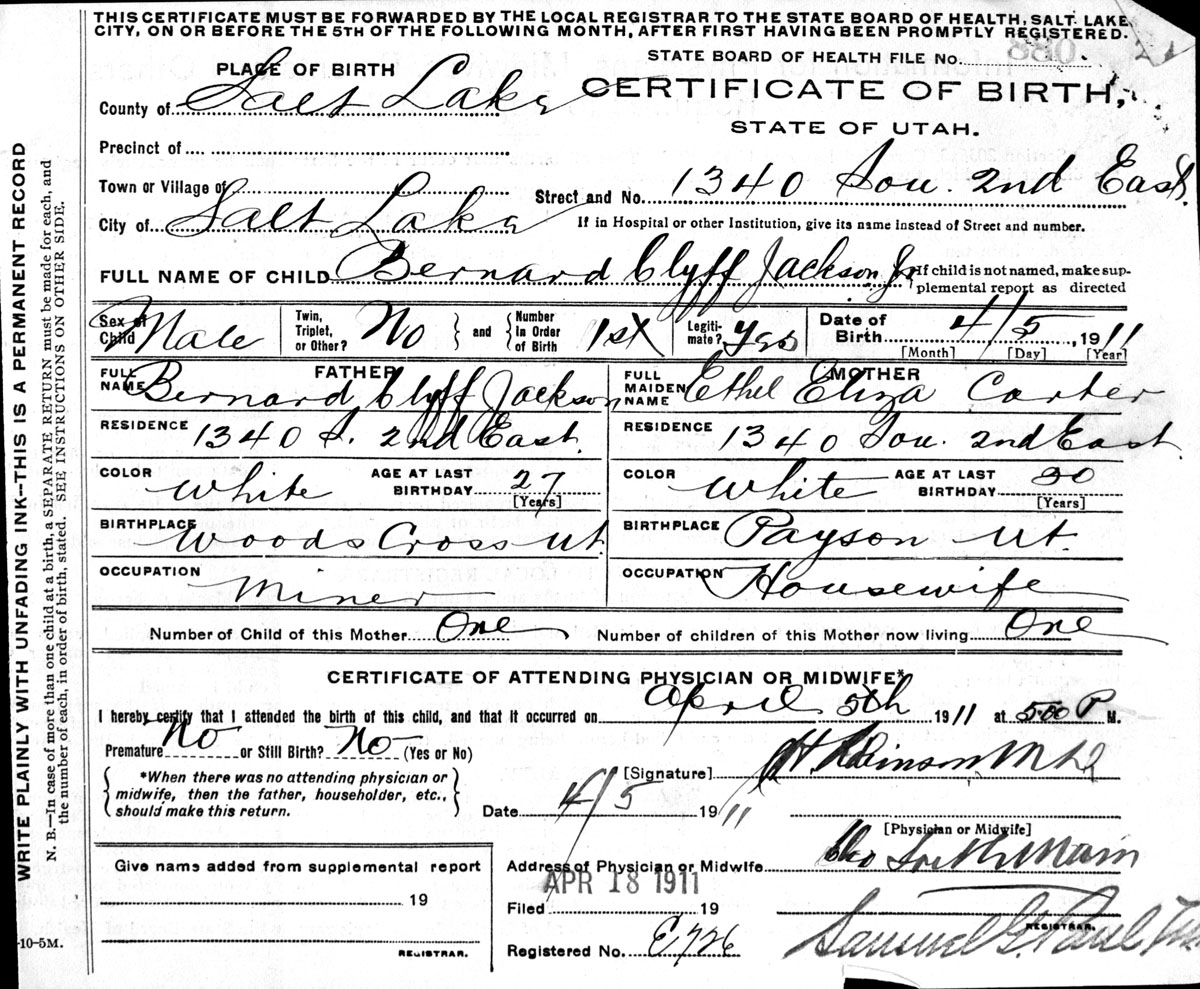 THIS CERTIFICATE MUST BE FORWARDED BY THE LOCAL REGISTRAR TO THE STATE BOARD OF HEALTH, SALT LAKE
CITY, ON OR BEFORE THE 5TH OF THE FOLLOWING MONTH, AFTER FIRST HAVING BEEN PROMPTLY REGISTERED.
STATE BOARD OF HEALTH FILE No.
PLACE OF BIRTH
CERTIFICATE OF BIRTH,
STATE OF UTAH.
County of Salt Lake
Precinct of
Town or Village of
Street and No. 1340 Sou. 2nd East.
City of Salt Lake
If in Hospital or other Institution, give its name instead of Street and number.
FULL NAME OF CHILD Bernard Clyff Jackson Jr
If child is not named, make sup-
plemental report as directed
Sex of Child Male
Twin, Triplet, or Other? No
and
Number in Order of Birth 1st
Legiti-mate? Yes
Date of Birth 4/5, 1911
[Month] [Day] [Year]
FATHER
FULL NAME Bernard Clyff Jackson
RESIDENCE 1340 S. 2nd East.
COLOR White AGE AT LAST BIRTHDAY 27 [Years]
BIRTHPLACE Woods Cross Ut.
OCCUPATION Miner
MOTHER
FULL MAIDEN NAME Ethel Eliza Carter
RESIDENCE 1340 Sou. 2nd East
COLOR White AGE AT LAST BIRTHDAY [Years]
BIRTHPLACE Payson Ut.
OCCUPATION Housewife
Number of Child of this Mother One Number of children of this Mother now living One
CERTIFICATE OF ATTENDING PHYSICIAN OR MIDWIFE*
I hereby certify that I attended the birth of this child, and that it occurred on April 5th 1911 at 5:00 P M.
Premature No or Still Birth? No (Yes or No)
*When there was no attending physician or
midwife, then the father, householder, etc.,
should make this return.
[Signature] M D
Date 4/5 1911
[Physician or Midwife]
Address of Physician or Midwife Main
APR 18 1911
Filed 19
Registered No. E726
Samuel G. Paul
REGISTRAR.
Give name added from supplemental report
19
REGISTRAR.
WRITE PLAINLY WITH UNFADING INK—THIS IS A PERMANENT RECORD
N. B.—In case of more than one child at a birth, a SEPARATE RETURN must be made for each, and
the number of each, in order of birth, stated. SEE INSTRUCTIONS ON OTHER SIDE.
-10-5M.